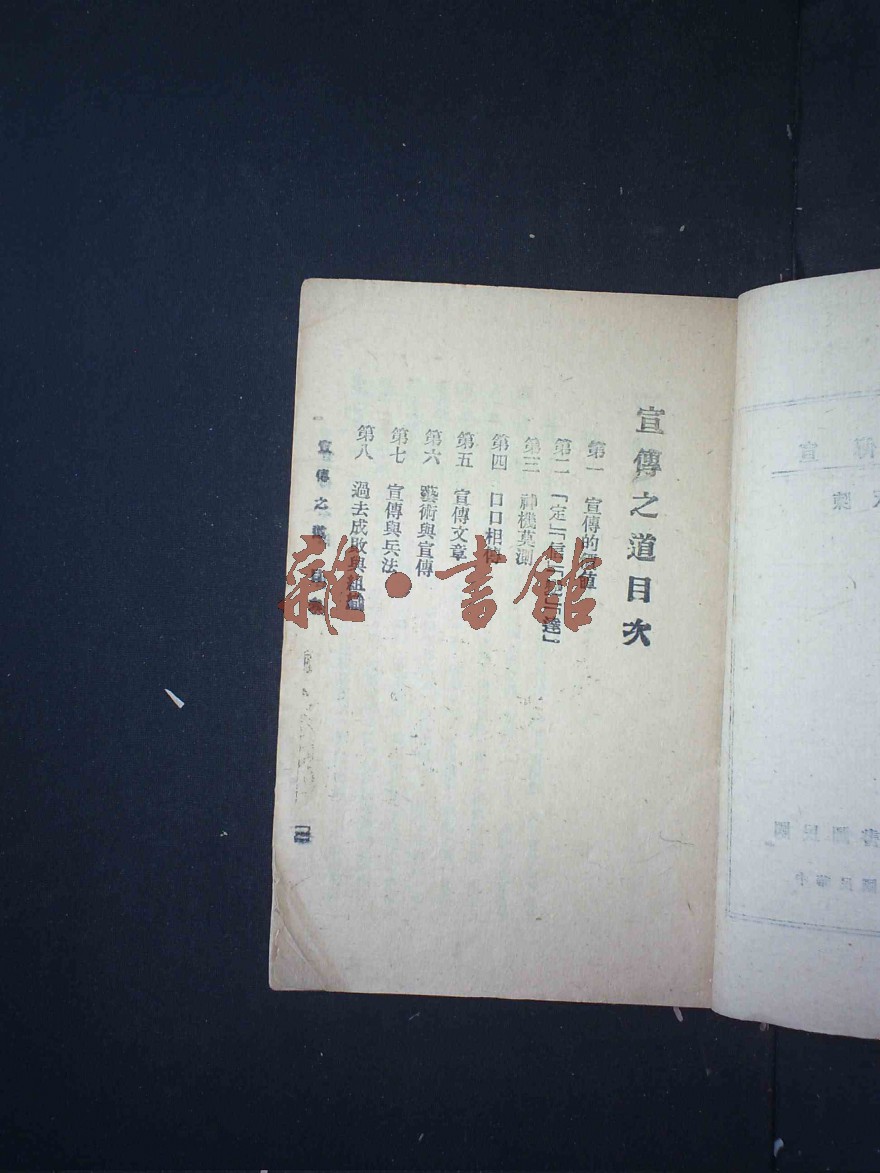 宣傳之道目次
第一 宣傳的價值
第二 「定」「信」「達」
第三 神機莫測
第四 口口相傳
第五 宣傳文章
第六 藝術與宣傳
第七 宣傳與兵法
第八 過去成敗與組織
宣傳之道 目次
雜·書館